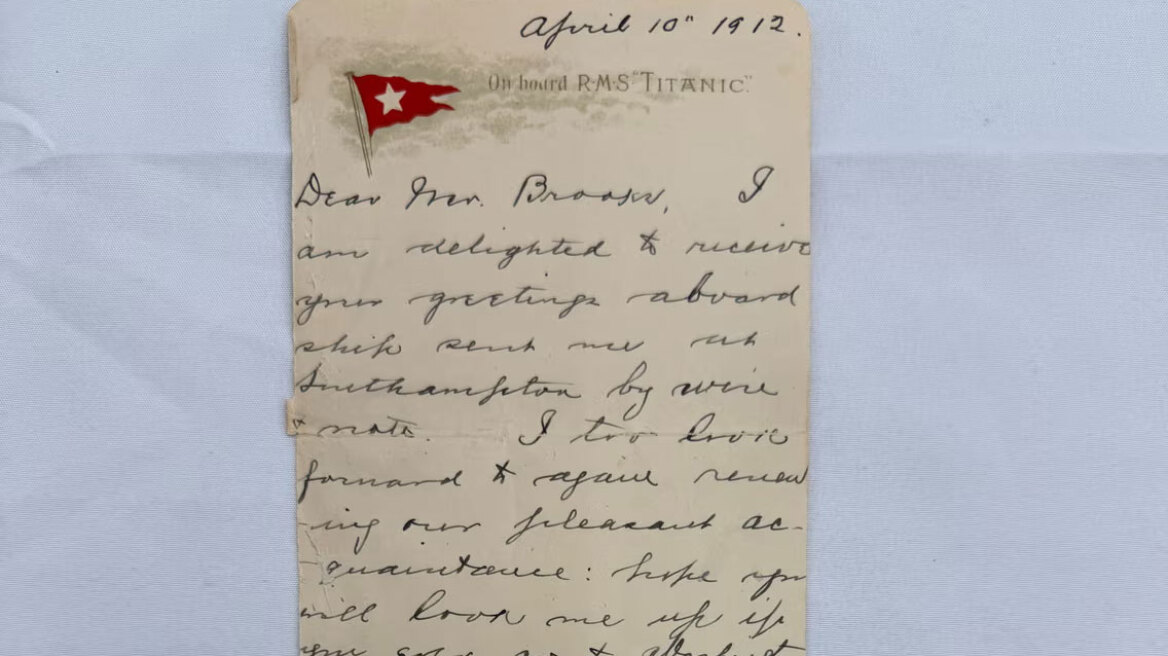 April 10" 1912.
On board R·M·S "TITANIC".
Dear Mr. Brooks, I
am delighted to receive
your greetings aboard
ship sent me at
Southampton by wire
& note. I too look
forward to again renew
-ing our pleasant ac-
-quaintance: hope you
will look me up if
you